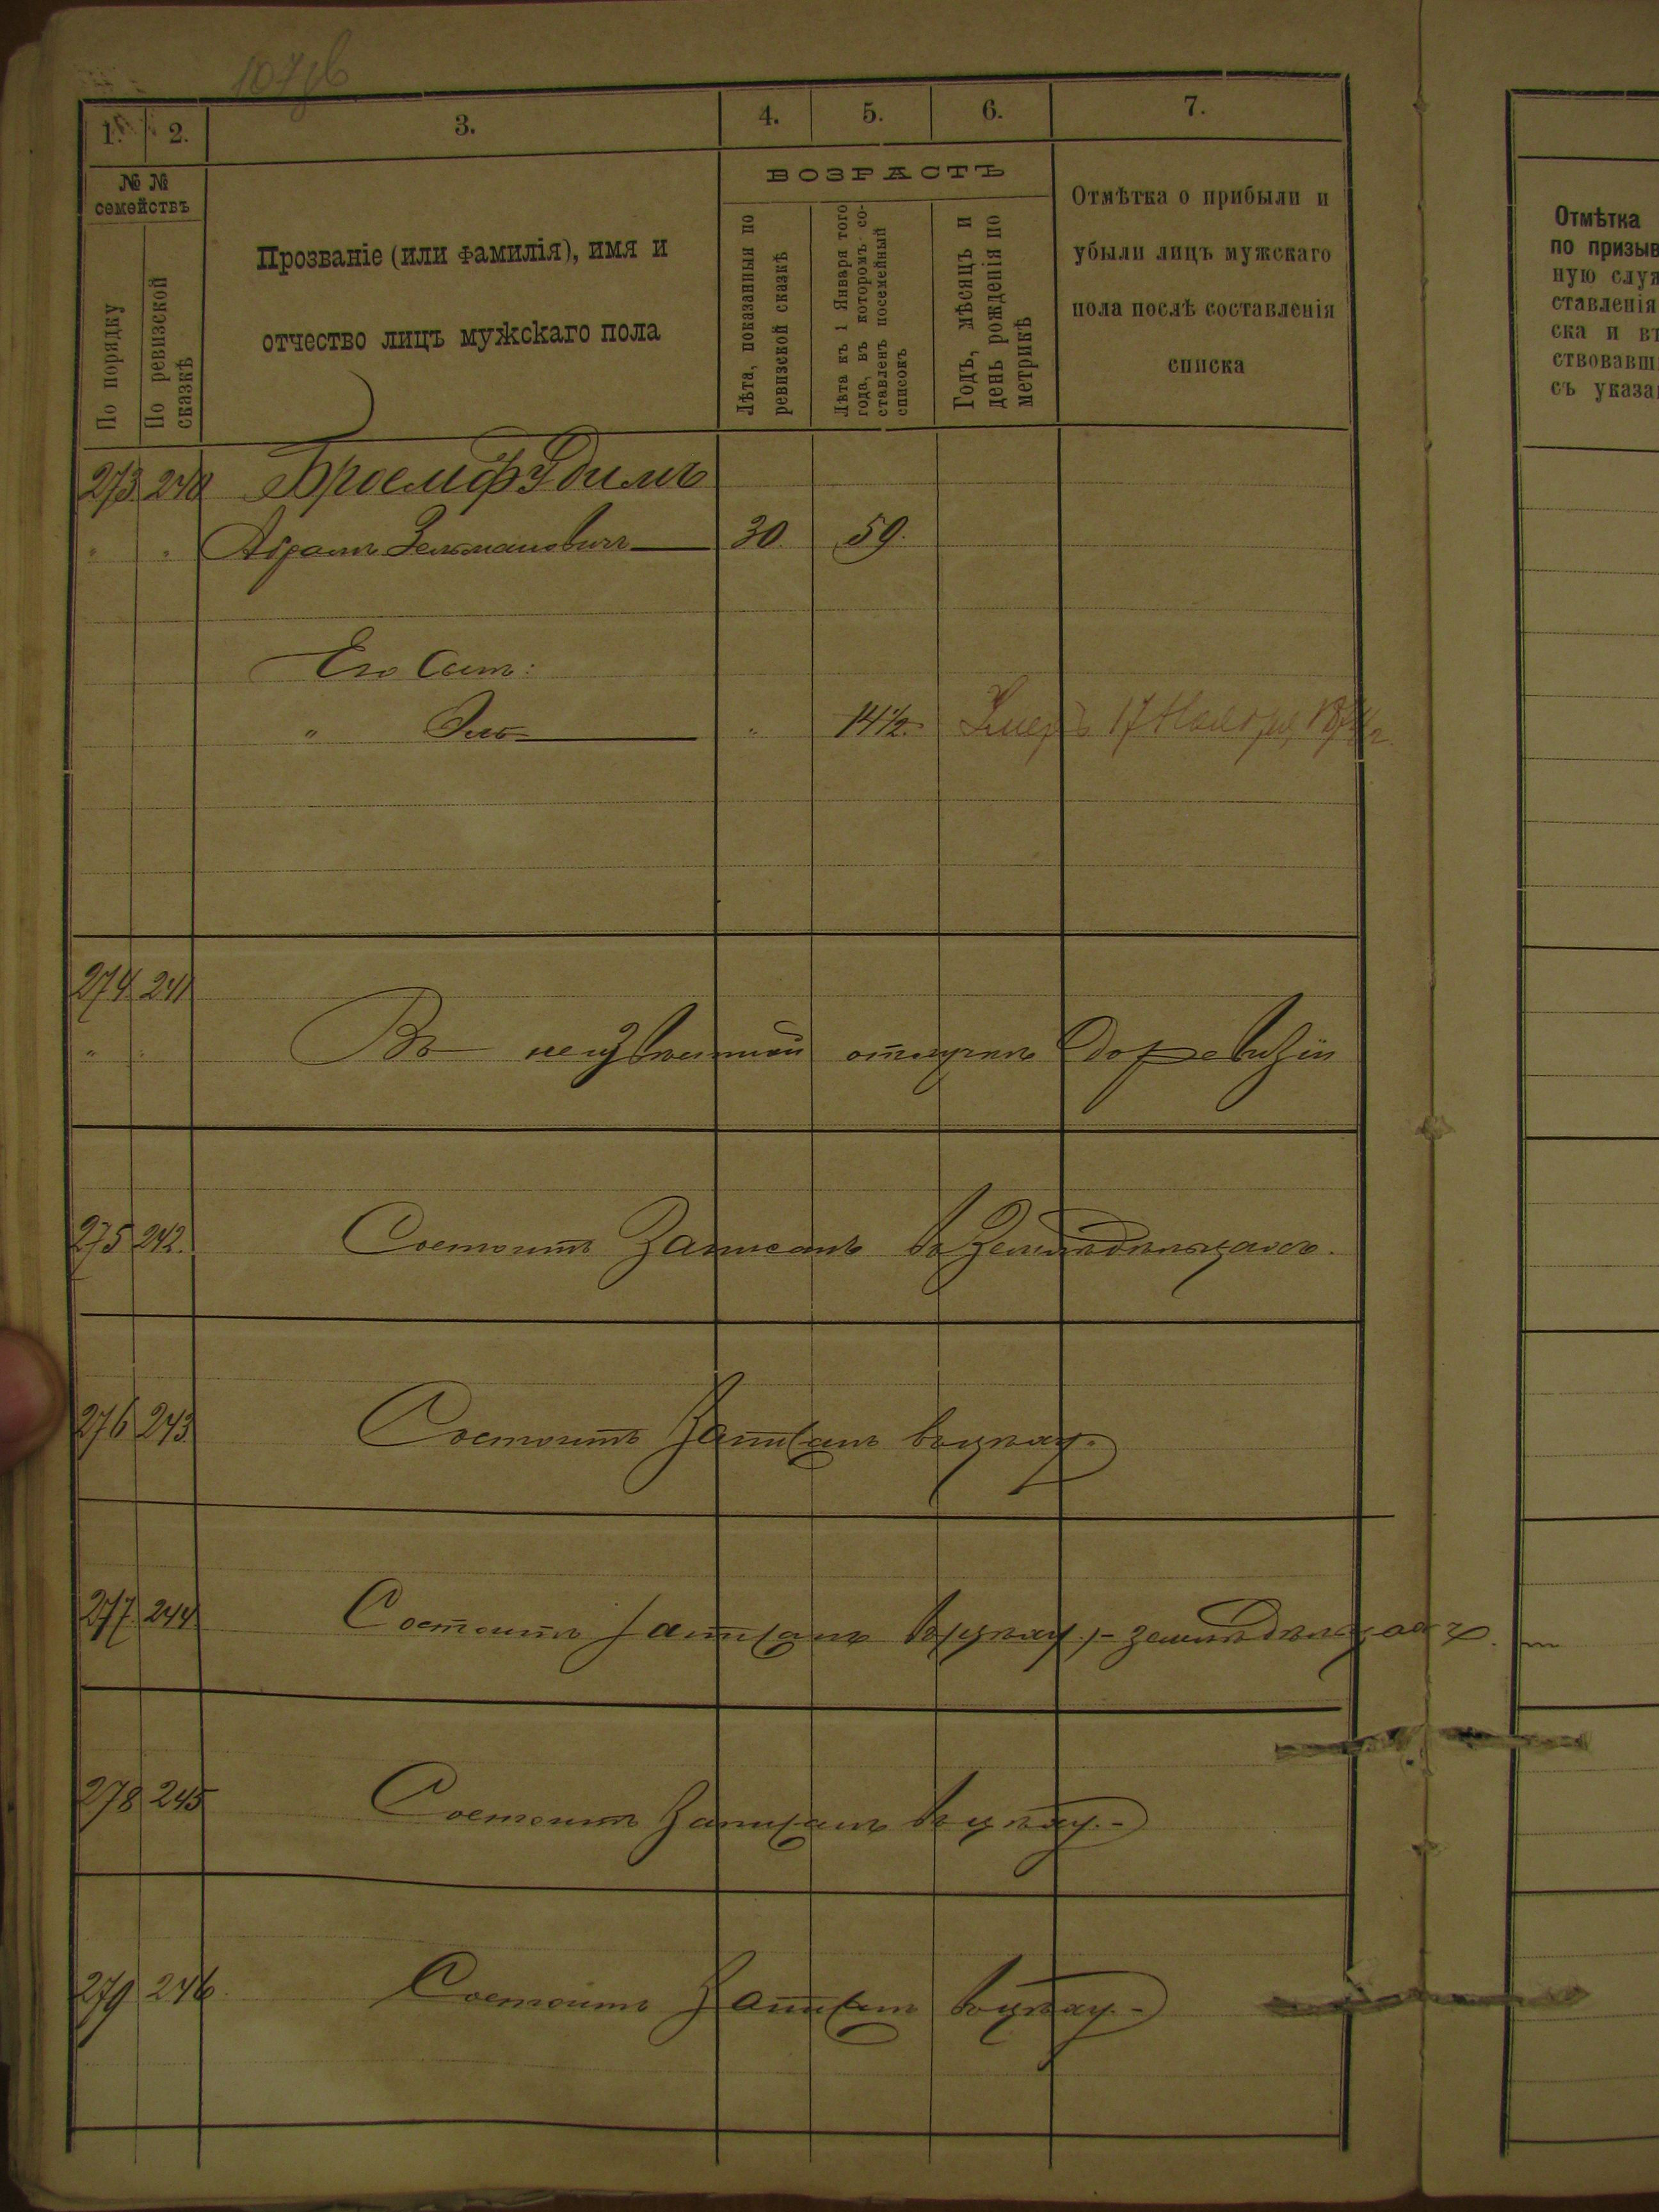 1. 2. 3. 4. 5. 6. 7.
№ №
семействъ
По порядку
По ревизской сказкѣ
Прозваніе (или фамилія), имя и
отчество лицъ мужскаго пола
ВОЗРАСТЪ
Лѣта, показанныя по
ревизской сказкѣ
Лѣта къ 1 Января того
года, въ которомъ со-
ставленъ посемейный
списокъ
Годъ, мѣсяцъ и
день рожденія по
метрикѣ
Отмѣтка о прибыли и
убыли лицъ мужскаго
пола послѣ составленія
списка
273 240
" " Абрамъ Зельмановичъ 30. 59.
Его Сынъ:
" " 14½. Умеръ 17 Ноября
274 241
" " Въ неизвѣстной отлучкѣ до ревизіи
275 242. Состоитъ Записанъ въ Земледѣльцахъ.
276 243. Состоитъ Записанъ
277. 244. Состоитъ Записанъ земледѣльцахъ.
278 245 Состоитъ Записанъ
279 246. Состоитъ Записанъ
Отмѣтка
по призыв
ную служ
ставленія
ска и въ
ствовавш
съ указа